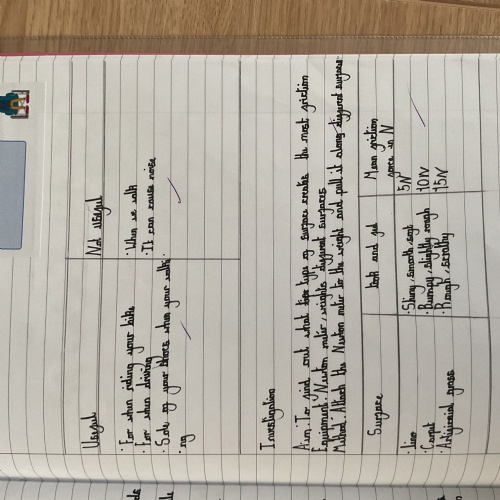 Useful
Not useful
· For when riding your bike
· For when driving
· Sole of your shoes when your walk
ing
· When we walk
· It can cause noise
Investigation
Aim: To find out what type of surface creates the most friction
Equipment: Newton meter, weights different surfaces
Method: Attach the Newton meter to the weight and pull it along different surfaces.
Surface
Look and feel
Mean friction
force in N
· lino
· Shiny, smooth, soft
5N
· Carpet
· Bumpy, slightly rough
10N
· Artificial grass
· Rough, scratchy
15N